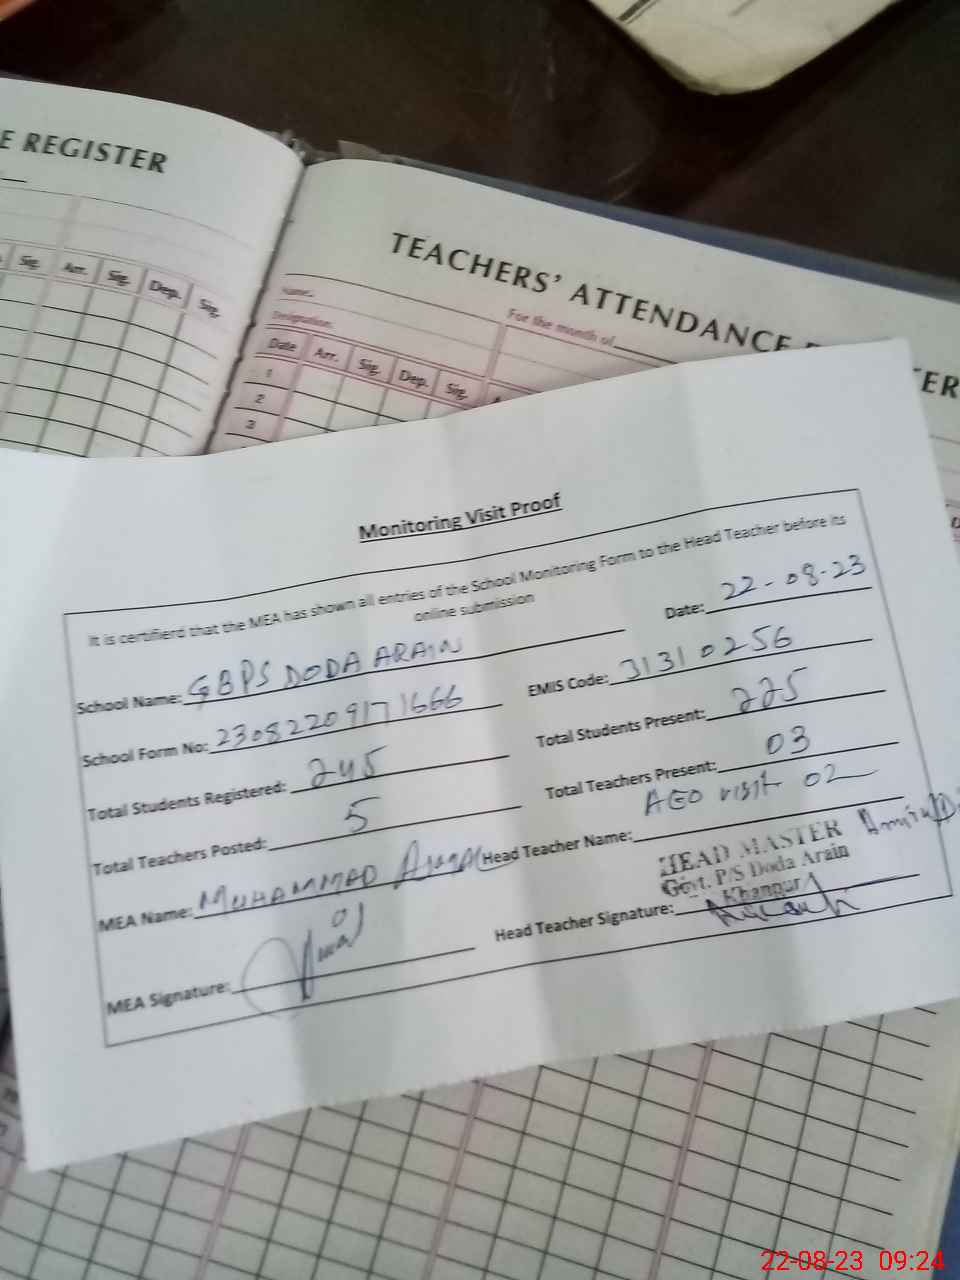 E REGISTER
Sig. Arr. Sig. Dep. Sig.
TEACHERS' ATTENDANCE
TER
Name.
For the month of
Designation.
Date Arr. Sig. Dep. Sig.
1
2
3
Monitoring Visit Proof
It is certifierd that the MEA has shown all entries of the School Monitoring Form to the Head Teacher before its
online submission
Date: 22-08-23
School Name: GBPS DODA ARAIN
EMIS Code: 31310256
School Form No: 23082209171666
Total Students Present: 225
Total Students Registered: 245
Total Teachers Present: 03
Total Teachers Posted: 5
AEO visit 02
MEA Name: MUHAMMAD
Head Teacher Name:
HEAD MASTER
Govt. P/S Doda Arain
Khanpur
Head Teacher Signature:
MEA Signature:
22-08-23 09:24